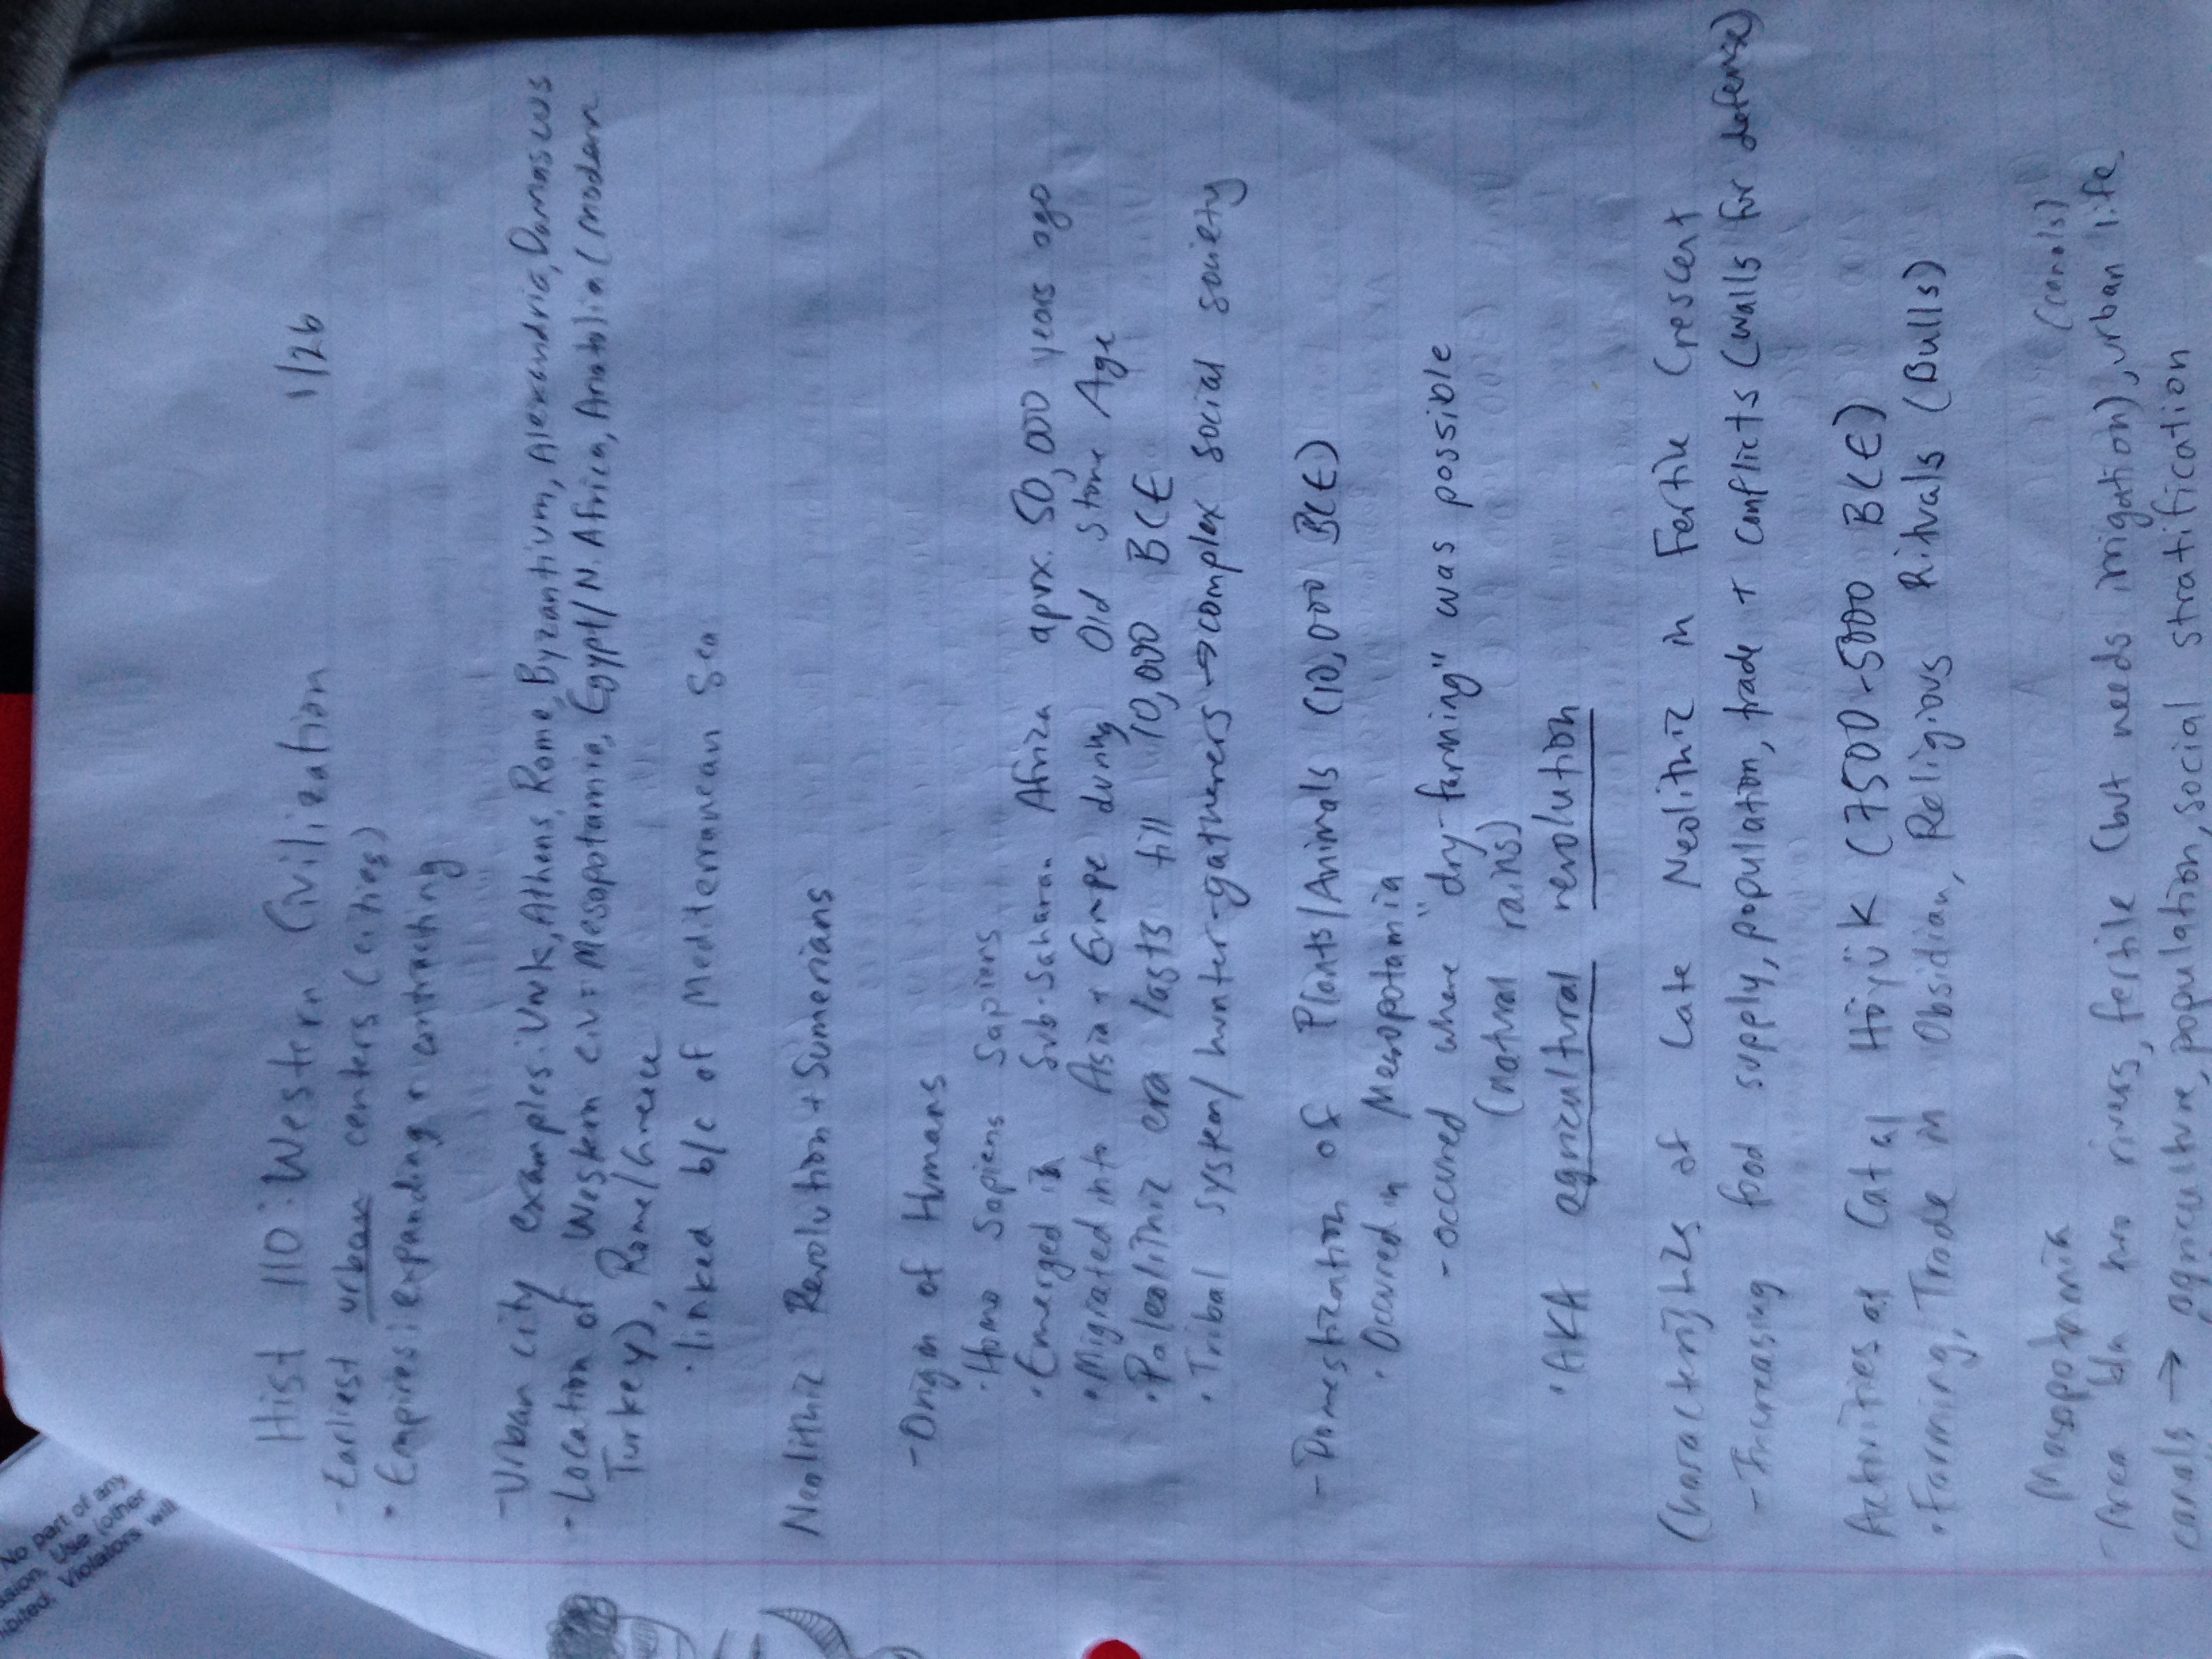 Hist 110: Western Civilization 1/26
- Earliest urban centers (cities)
• Empires: expanding + contracting
- Urban city examples: Uruk, Athens, Rome, Byzantium, Alexandria, Damascus
• Location of Western civ = Mesopotamia, Egypt/N. Africa, Anatolia (modern
Turkey), Rome/Greece
• linked b/c of Mediterranean Sea
Neolithic Revolution + Sumerians
- Origin of Humans
• Homo Sapiens Sapiens
• Emerged in Sub-Saharan Africa aprx. 50,000 years ago
• Migrated into Asia + Europe during Old Stone Age
• Paleolithic era lasts till 10,000 BCE
• Tribal system/hunter-gatherers → complex social society
- Domestication of Plants/Animals (10,000 BCE)
• Occured in Mesopotamia
- occured where "dry-farming" was possible
(natural rains)
• AKA agricultural revolution
Characteristics of Late Neolithic in Fertile Crescent
- Increasing food supply, population, trade + conflicts (walls for defense)
Activities at Catal Höyük (7500-5000 BCE)
• Farming, Trade in Obsidian, Religious Rituals (Bulls)
Mesopotamia
(canals)
- Area b/w two rivers, fertile (but needs irrigation), urban life
canals → agriculture, population, social stratification
No part of any
Use (other
Violators will